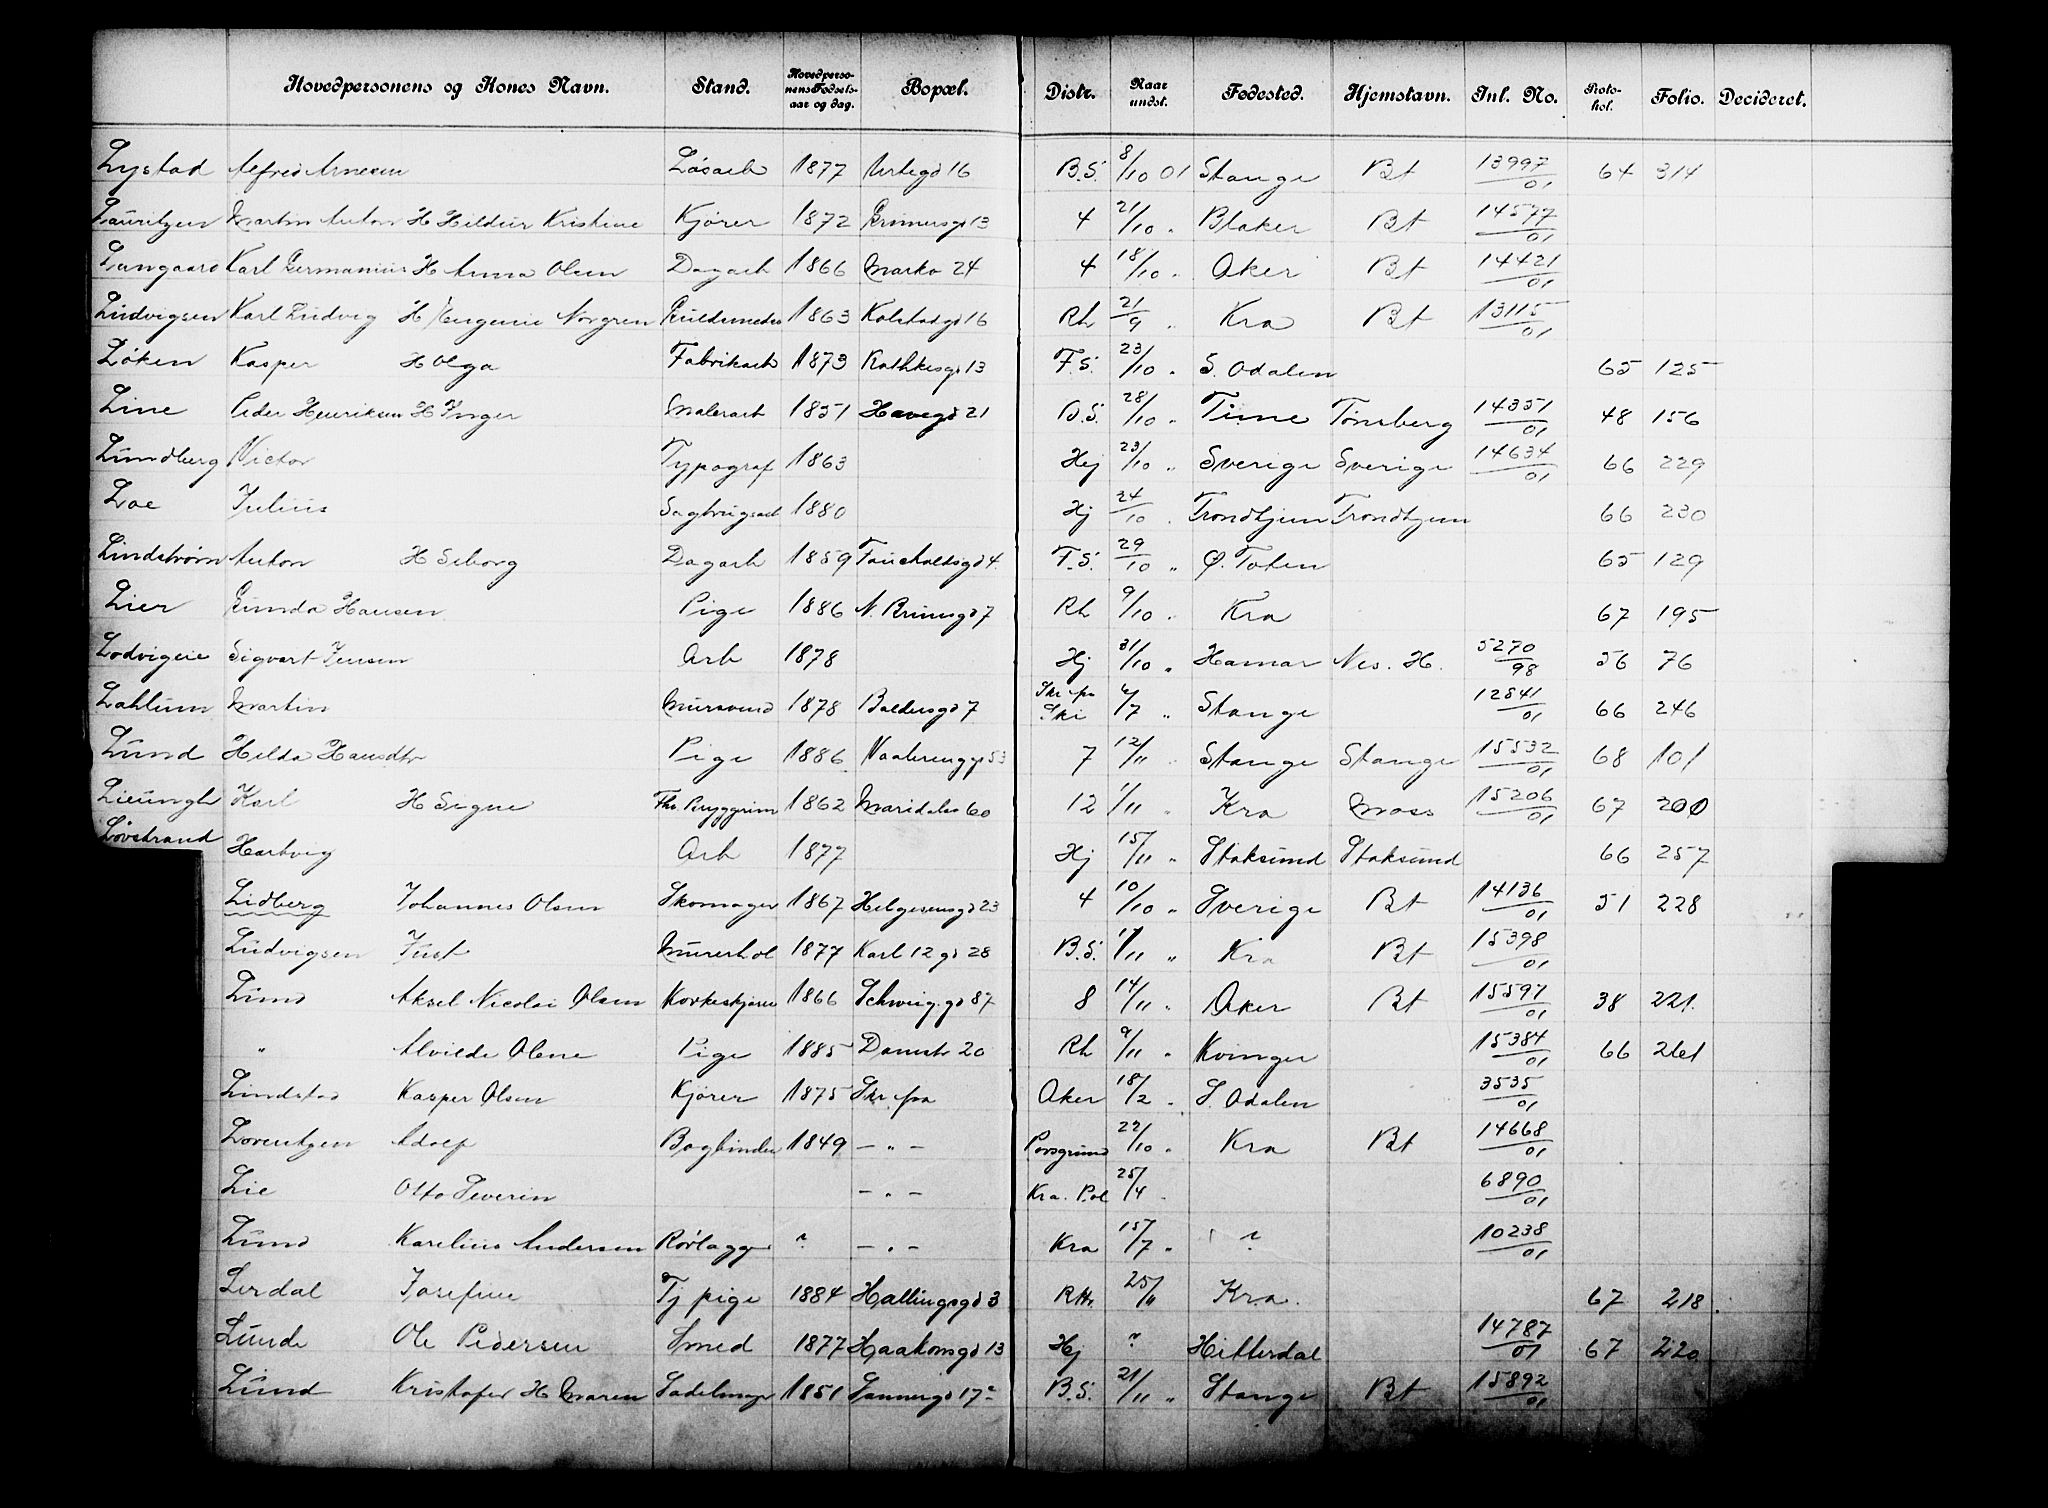 Hovedpersonens og Kones Navn. Stand. Hovedpersonens Fødselsaar og dag. Bopæl. Distr. Naar undst. Fødested. Hjemstavn. Inl. No. Protokol. Folio. Decideret.
Lystad Alfred Arnesen Løsarb 1877 Urtegd 16 B.S. 8/10 01 Stange Bt 13997/01 64 314
Lauritzen Martin Anton H Hildur Kristine Kjører 1872 Grünersgd 13 4 21/10 " Blaker Bt 14577/01
Langaard Karl Germanius H Anna Olsen Dagarb 1866 Markv 24 4 18/10 " Aker Bt 14421/01
Ludvigsen Karl Ludvig H Eugenie Norgren Guldsmedsv 1863 Kolstadgd 16 Rh 21/9 " Kra Bt 13115/01
Løken Kasper H Olga Fabrikarb 1873 Rathkesgd 13 F.S. 23/10 " S. Odalen 65 125
Line Peder Henriksen H Inger Malerarb 1851 Havegd 21 B.S. 28/10 " Time Tønsberg 14351/01 48 156
Lundberg Victor Typograf 1863 Hej 23/10 " Sverige Sverige 14634/01 66 229
Loe Julius Sagbrugsarb 1880 Hj 24/10 " Trondhjem Trondhjem 66 230
Lindstrøm Anton H Seborg Dagarb 1859 Fauchaldsgd 4 F.S. 29/10 " Ø. Toten 65 129
Lier Gunda Hansen Pige 1886 N. Brunsgd 7 Rh 9/10 " Kra 67 195
Lodvigeie Sigvart Jensen Arb 1878 Hj 31/10 " Hamar Nes. H. 5270/98 56 76
Lahlum Martin Mursvend 1878 Baldersgd 7 Skr fra Ski 6/7 " Stange 12841/01 66 246
Lund Hilda Hansdtr Pige 1886 Vaalerenggd 53 7 12/11 " Stange Stange 15532/01 68 101
Lieungh Karl H Signe Fhv. Bryggerim 1862 Maridalsv 60 12 1/11 " Kra Moss 15206/01 67 200
Løvstrand Hartvig Arb 1877 Hj 15/11 " Stoksund Stoksund 66 257
Lidberg Johannes Olsen Skomager 1867 Helgesensgd 23 4 10/10 " Sverige Bt 14136/01 51 228
Ludvigsen Just Murerhol 1877 Karl 12 gd 28 B.S. 11/11 " Kra Bt 15398/01
Lund Aksel Nicolai Olsen Korkeskjærer 1866 Schweig.gd 87 8 14/11 " Aker Bt 15597/01 38 221.
" Alvilde Olsne Pige 1885 Danestr 20 Rh 9/11 " Kvinger 15384/01 66 261
Lindstad Kasper Olsen Kjører 1875 Skr. fra Aker 18/2 " S. Odalen 3535/01
Lorentzen Adolf Bogbinder 1849 — " — Porsgrund 22/10 " Kra Bt 14668/01
Lie Otto Severin — " — Kra. Pol 25/4 " 6890/01
Lund Karelius Andersen Rørlægger ? — " — Kra 15/7 " ? 10238/01
Lerdal Josefine Tj pige 1884 Hallingsgd 3 RH. 25/11 Kra. 67 218.
Lunde Ole Pedersen Smed 1877 Haakonsgd 13 Hj ? Hitterdal 14787/01 67 220
Lund Kristofer H Maren Sadelmager 1851 Sannergd 17 B.S. 21/11 " Stange Bt 15892/01